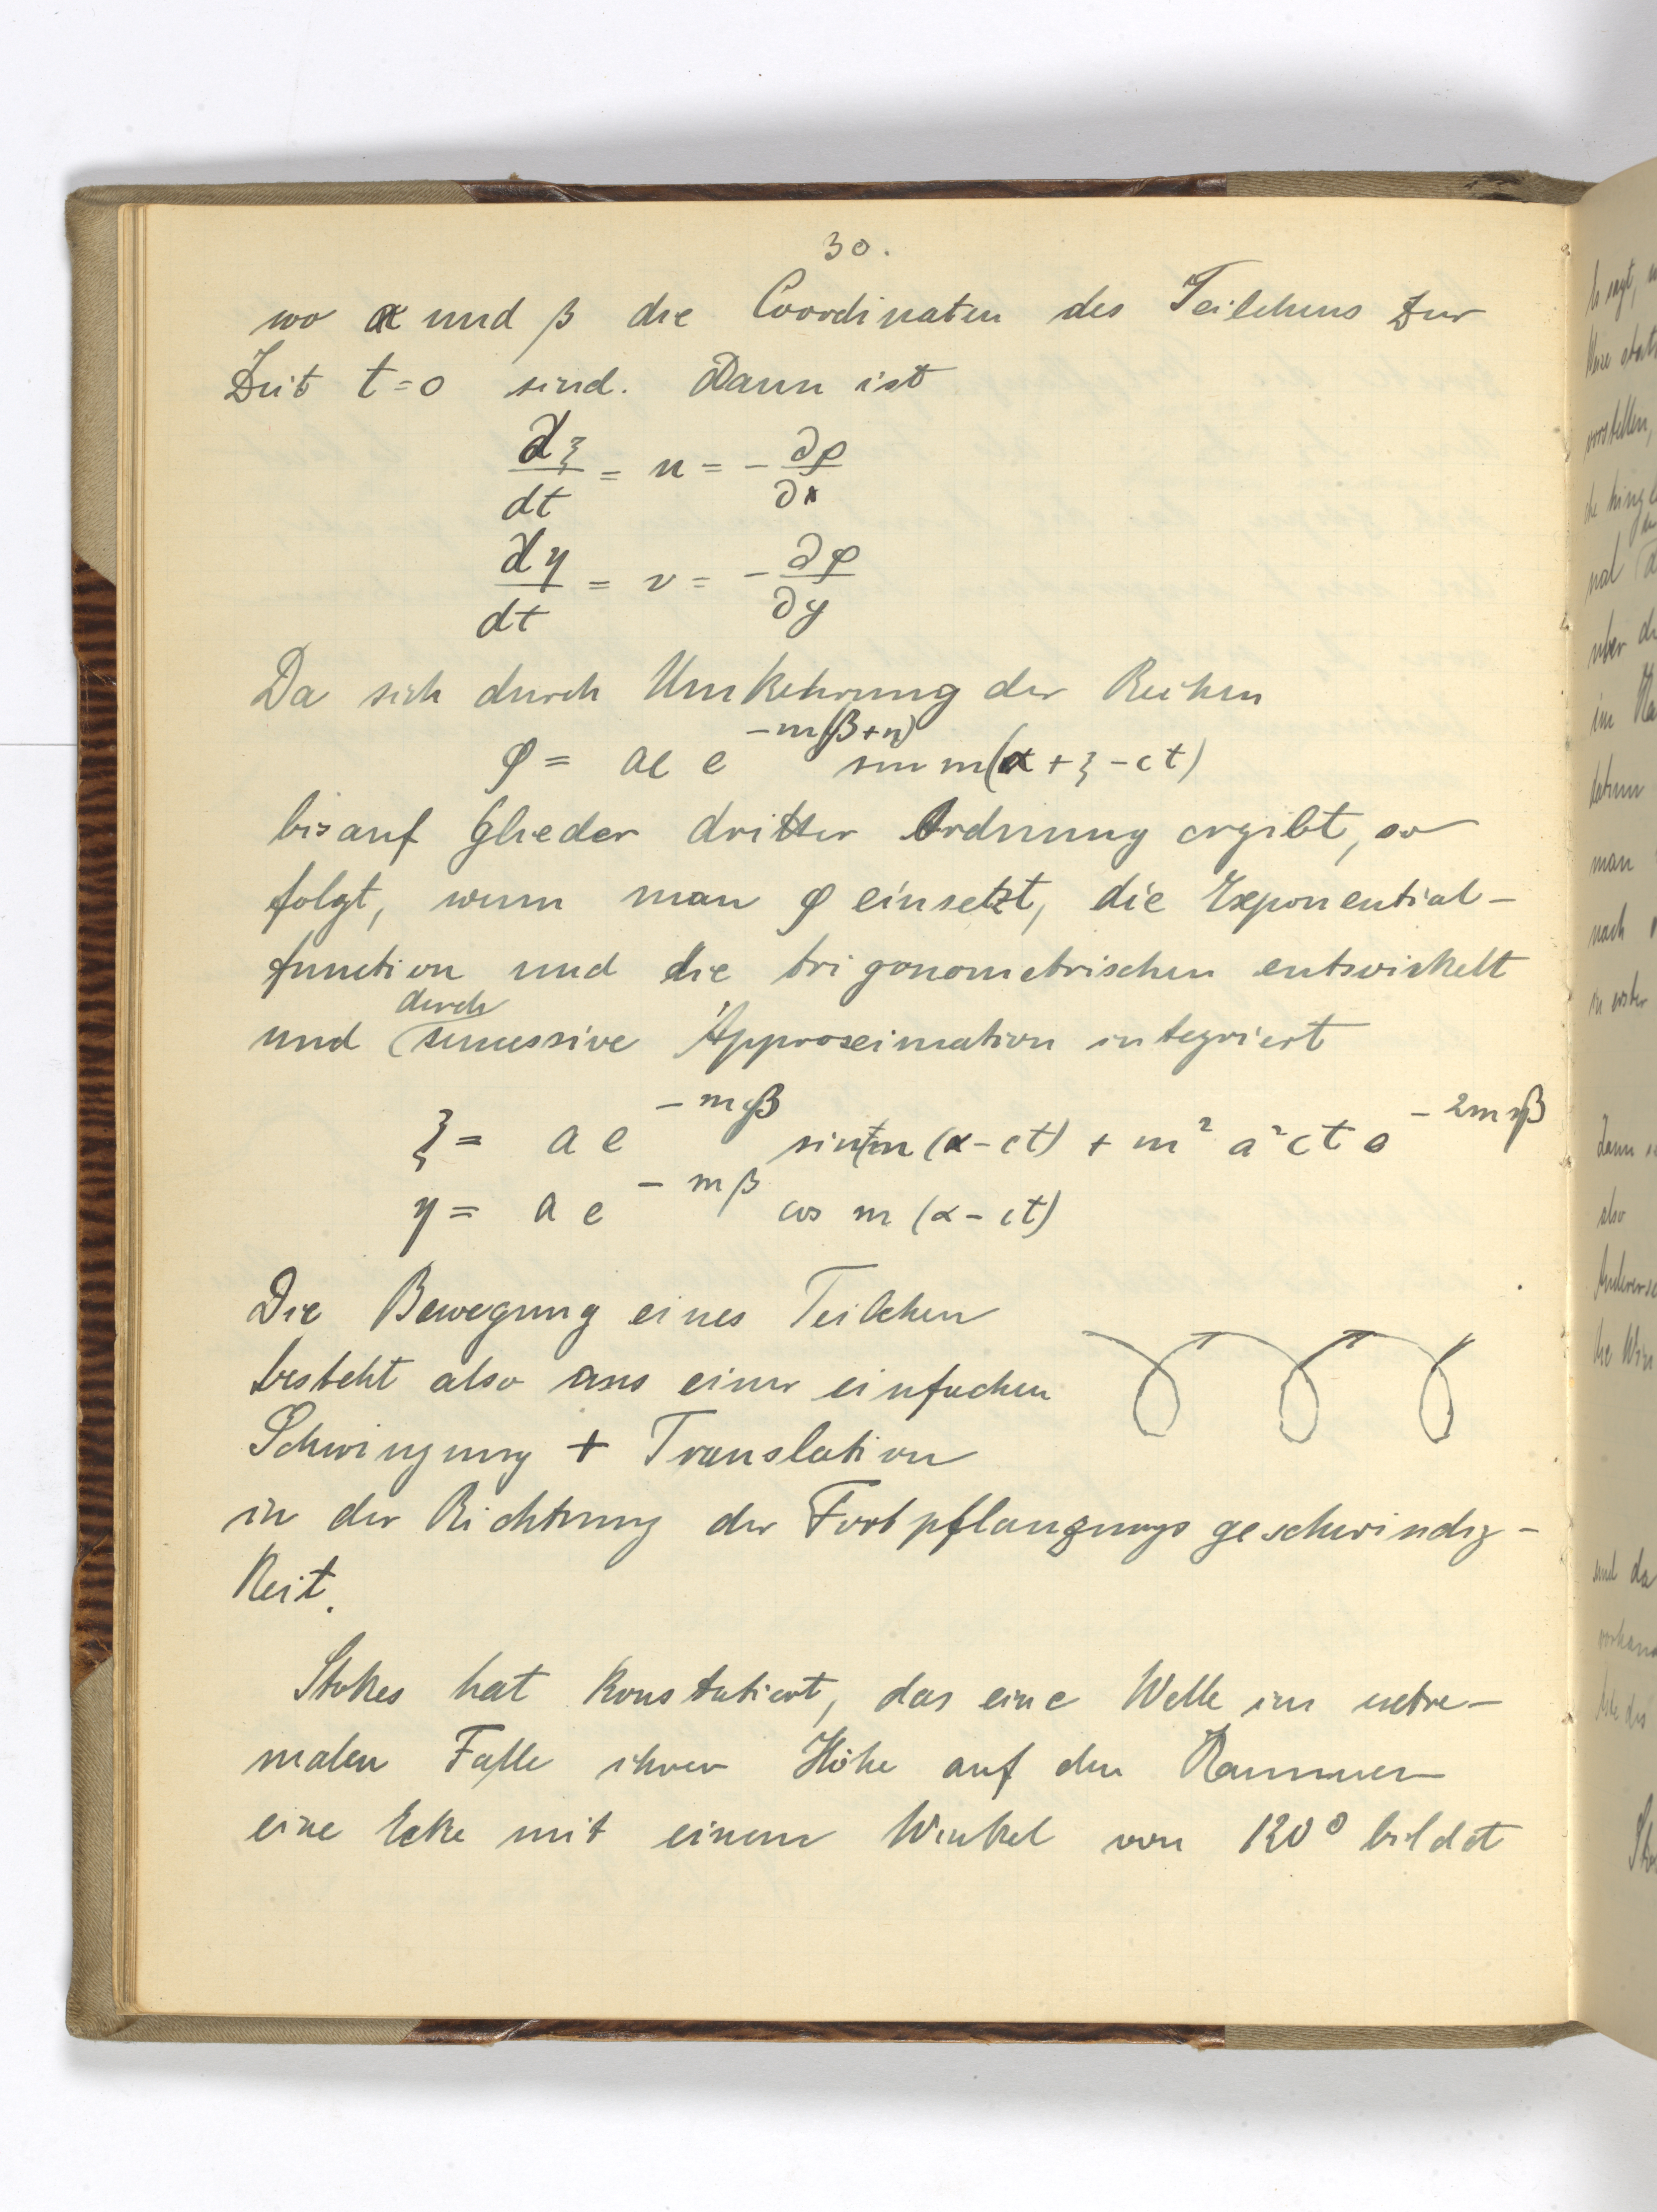 30.
wo α und β die Coordinaten des Teilchens zur
Zeit t=0 sind. Dann ist
dξ/dt = u = - ∂φ/∂x
dη/dt = v = - ∂φ/∂y
Da sich durch Umkehrung der Reihen
φ = ac e^{-m(β+η)} sin m(α+ξ-ct)
bis auf Glieder dritter Ordnung ergibt, so
folgt, wenn man φ einsetzt, die Exponential-
function und die trigonometrischen entwickelt
und durch sucessive Approximation integriert
ξ = a e^{-mβ} sin m (α-ct) + m² a² ct e^{-2mβ}
η = a e^{-mβ} cos m (α-ct)
Die Bewegung eines Teilchen
besteht also aus einer einfachen
Schwingung + Translation
in der Richtung der Fortpflanzungsgeschwindig-
keit.
Stokes hat konstatiert, das eine Welle im extre-
malen Falle ihrer Höhe auf den Kammen
eine Ecke mit einem Winkel von 120° bildet